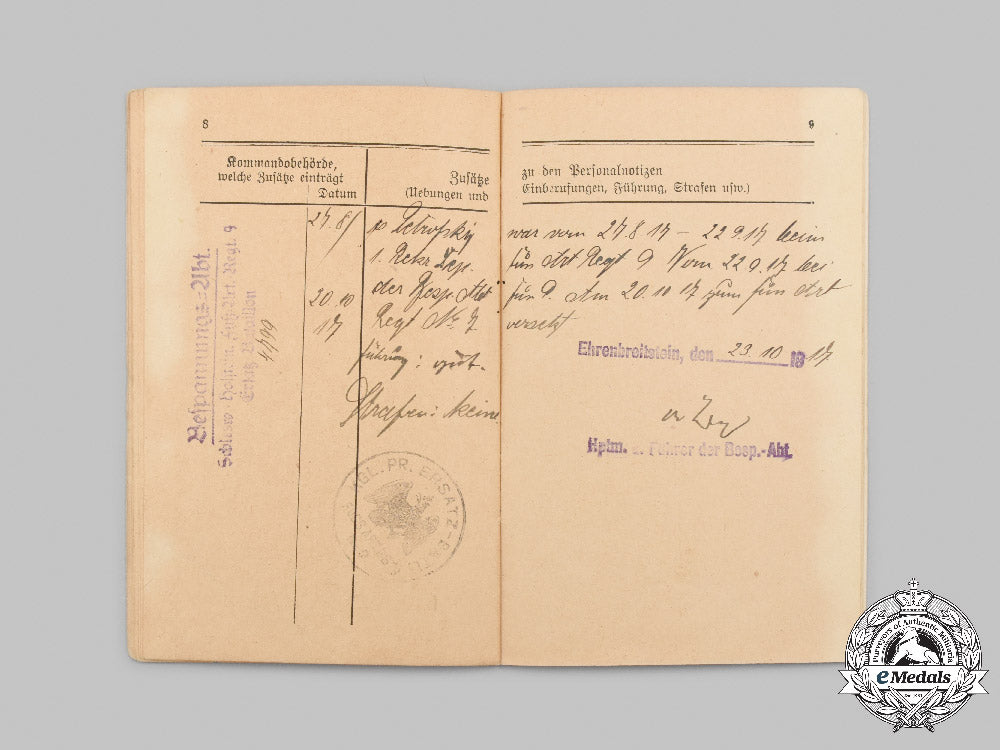 8
Kommandobehörde,
welche Zusätze einträgt
Datum
Zusätze
(Uebungen und
Bespannungs=Abt.
Schlesw.-Holstein. Fuß-Art. Regt. 9
Ersatz-Bataillon
27.8
20.10
17
Petrofsky
1. Rekr. Dep.
der Besp. Abt
Regt No 7
Führung: gut.
Strafen: keine
KGL. PR. ERSATZ-BATL.
9
zu den Personalnotizen
Einberufungen, Führung, Strafen usw.)
war vom 27.8.17 – 22.9.17 beim
Fuß Art Regt 9 Vom 22.9.17 bei
Am 20.10.17 zum Fuß Art
versetzt
Ehrenbreitstein, den 23.10 1917
Hptm. u. Führer der Besp.-Abt.
Purveyors of Authentic Militaria
eMedals